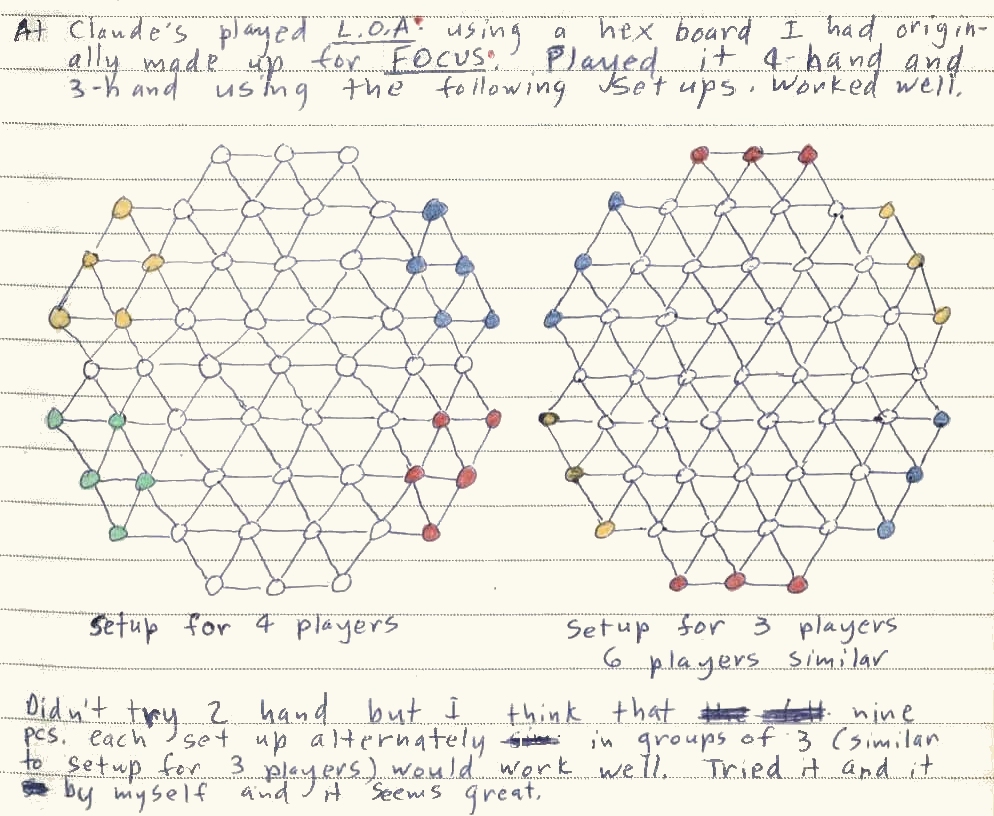 At Claude's played L.O.A. using a hex board I had origin-
ally made up for FOCUS. Played it 4-hand and
3-hand using the following setups. Worked well.
Setup for 4 players
Setup for 3 players
6 players similar
Didn't try 2 hand but I think that nine
pcs. each set up alternately in groups of 3 (similar
to setup for 3 players) would work well. Tried it and it
by myself and it seems great.